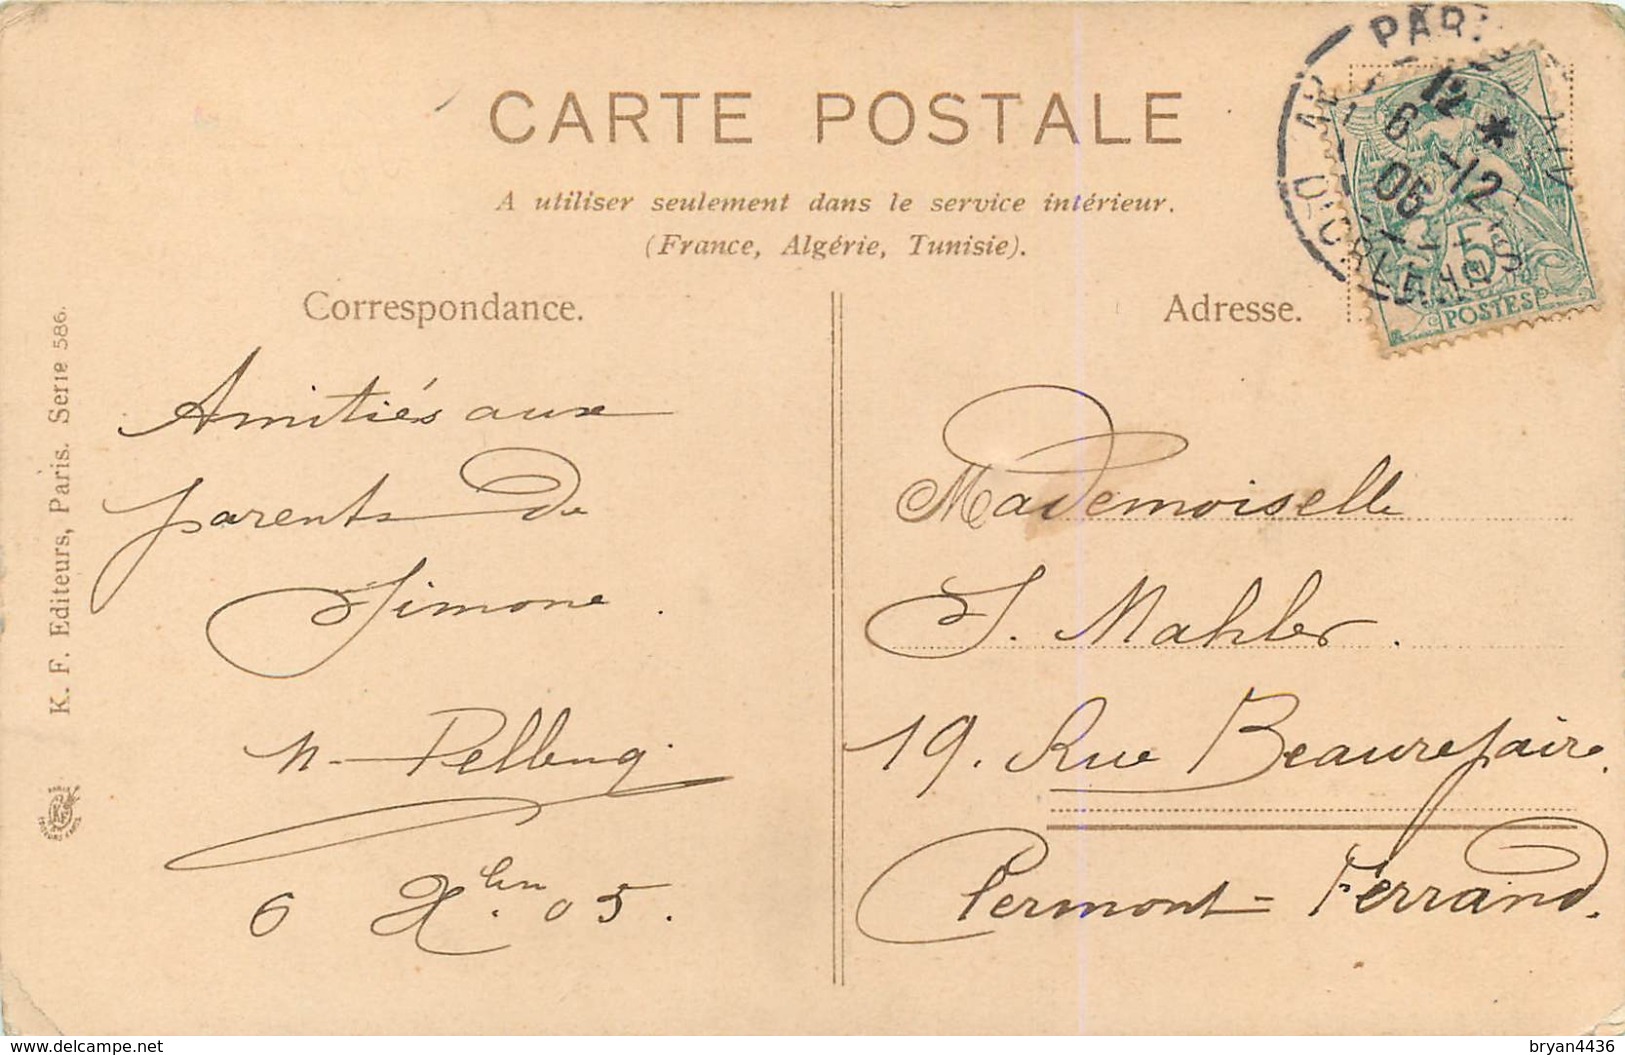 CARTE POSTALE
A utiliser seulement dans le service intérieur.
(France, Algérie, Tunisie).
Correspondance.
Adresse.
Amitiés aux
parents de
Simone.
6 Xbre. 05.
Mademoiselle
S. Mahler.
19. Rue Beaurepaire.
Clermont-Ferrand.
K. F. Editeurs, Paris. Serie 586.
PARIS
12 *
6 -12
05
D'ORLEANS
5
POSTES
delcampe.net
bryan4436